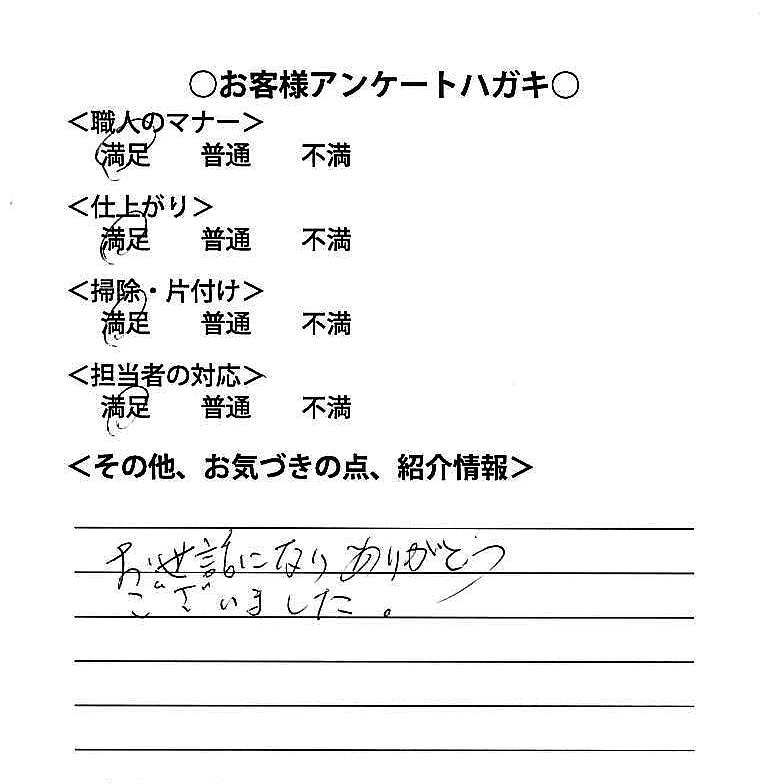 ○お客様アンケートハガキ○
＜職人のマナー＞
満足 普通 不満
＜仕上がり＞
満足 普通 不満
＜掃除・片付け＞
満足 普通 不満
＜担当者の対応＞
満足 普通 不満
＜その他、お気づきの点、紹介情報＞
お世話になりありがとう
ございました。